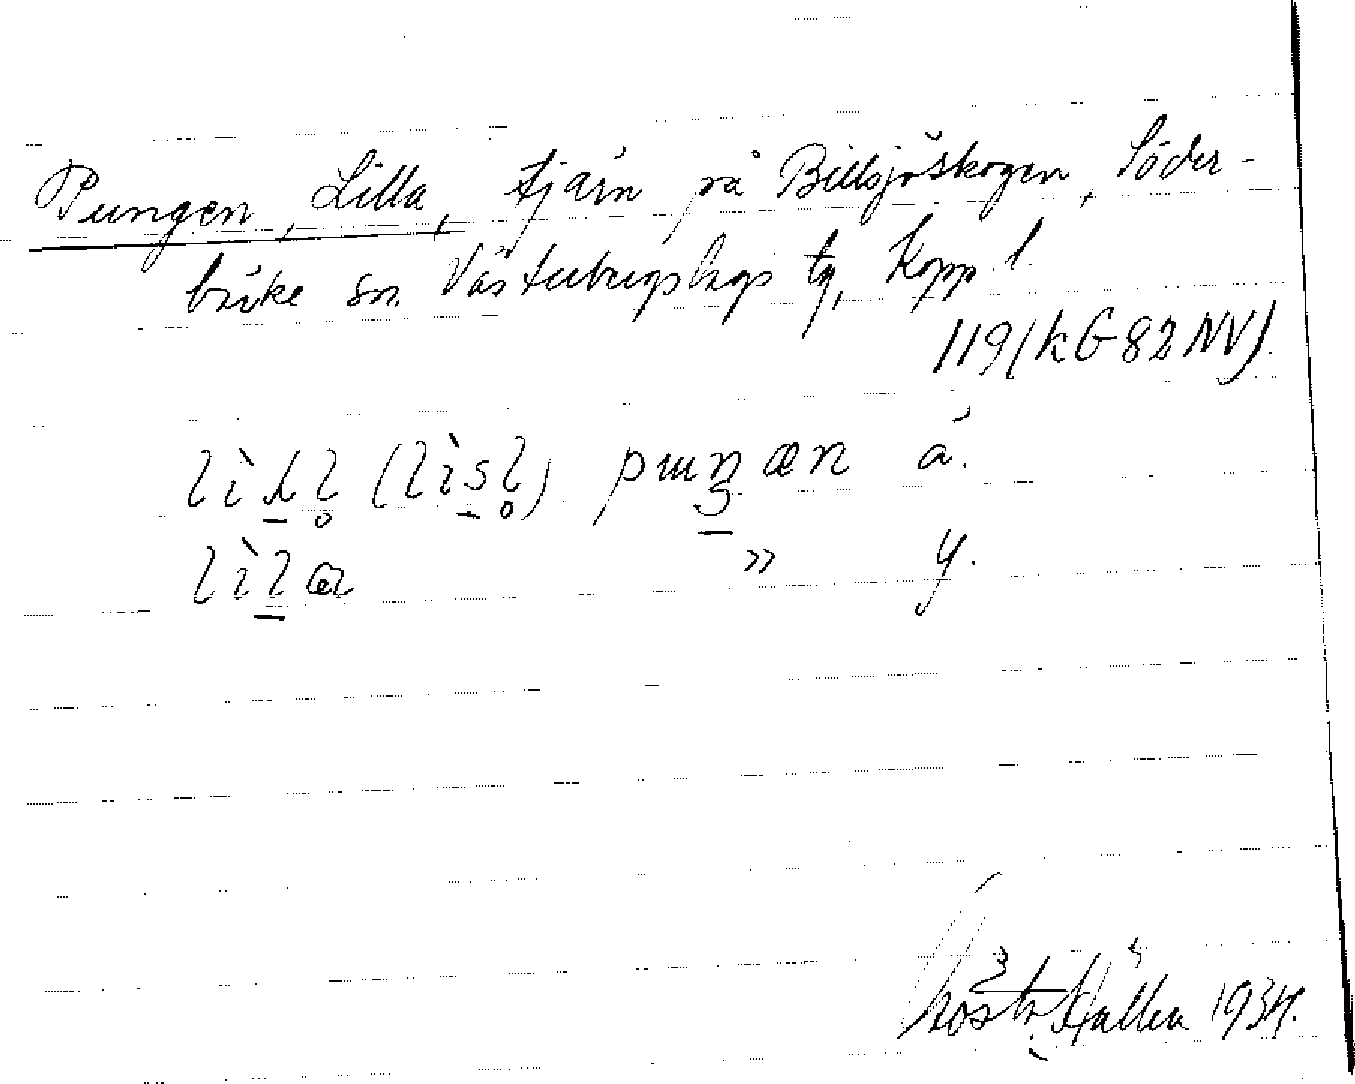 Pungen, Lilla, tjärn på Billsjöskogen, Söder-
bärke sn. Västerbergslags tg, Kopp. l.
119 (k G 82 NV).
lìʎl̥ (lìsl̥) pɯŋʒæn ä.
lìla » y.
Gösta Hållén 1934.